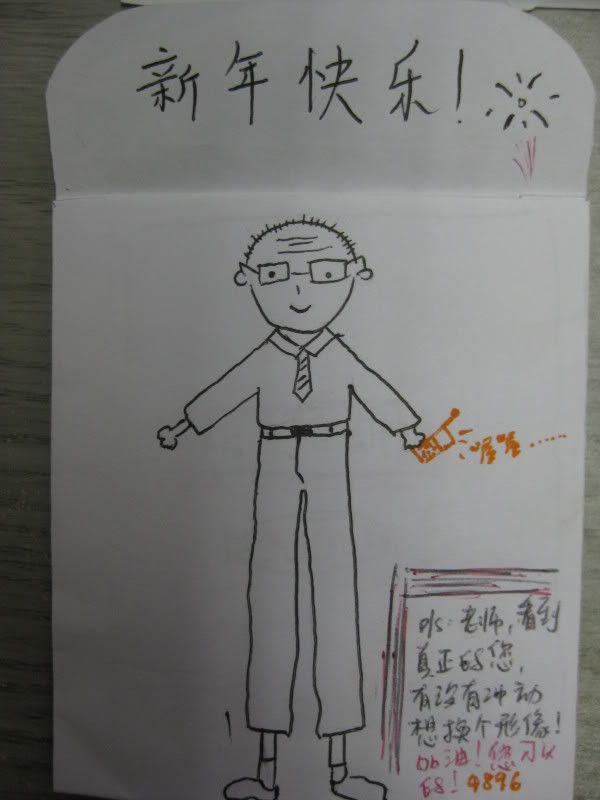 新年快乐!
喔喔......
ps:老师,看到
真正的您,
有没有冲动
想换个形像!
加油!您可以
的!4896